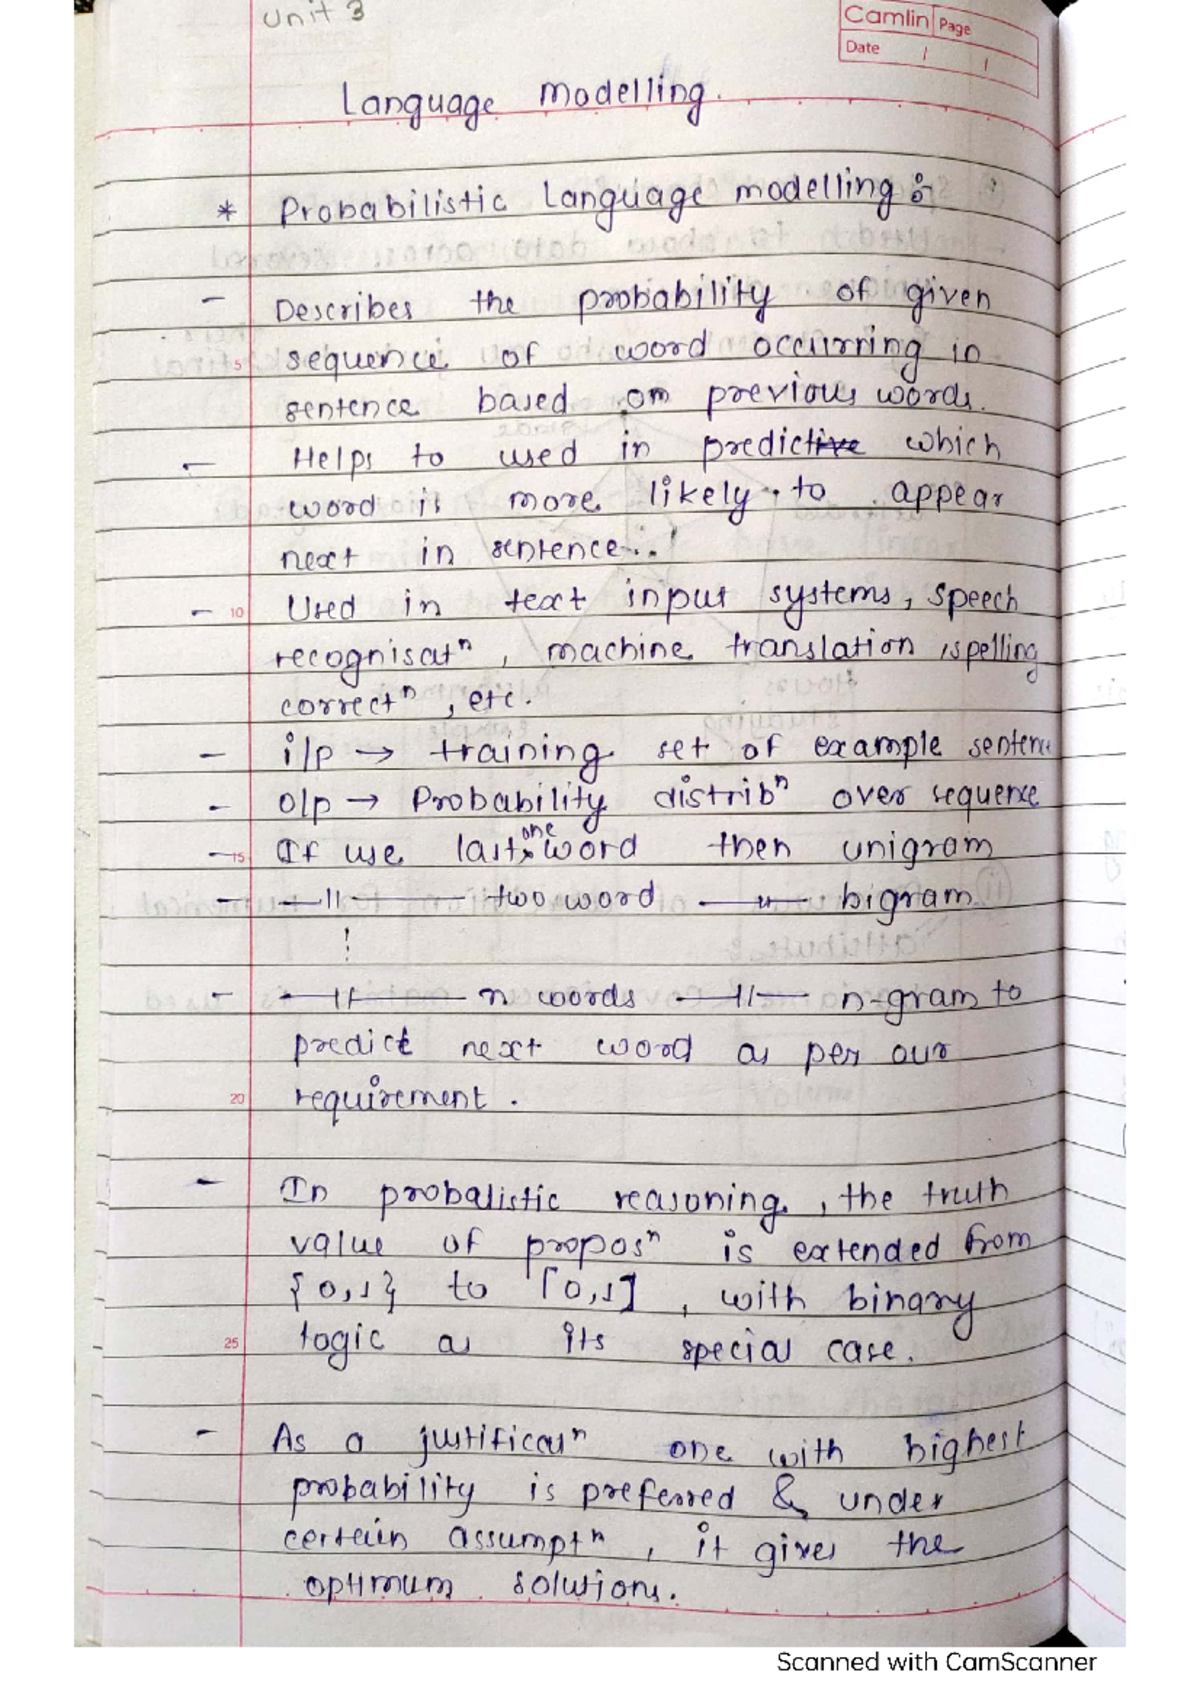 Unit 3
Camlin Page
Date / /
Language modelling.
* Probabilistic Language modelling :-
- Describes the probability of given
5 sequence of word occurring in
sentence based on previous words.
- Helps to used in predictive which
word is more likely to appear
next in sentence...
- 10 Used in text input systems, speech
recognisatⁿ, machine translation, spelling
correctⁿ, etc.
- i/p → training set of example sentence
- o/p → Probability distribⁿ over sequence
- 15 If use last one word then unigram
- —〃— two word —〃— bigram
!
- —〃— n words —〃— n-gram to
predict next word as per our
20 requirement.
- In probalistic reasoning, the truth
value of proposⁿ is extended from
{0,1} to [0,1], with binary
25 logic as its special case.
- As a justificatⁿ one with highest
probability is preferred & under
certain assumptⁿ, it gives the
optimum solutions.
Scanned with CamScanner